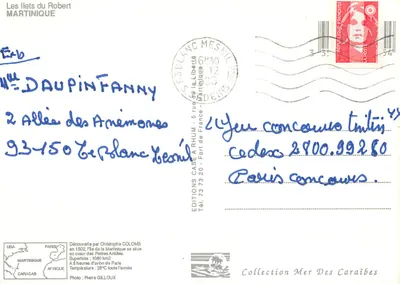 Les Ilets du Robert
MARTINIQUE
Exp
Mlle DAUPIN FANNY
2 Allée des Anémones
93-150 Le Blanc Mesnil
LE BLANC MESNIL
EDITIONS CASE A RHUM - 5 rue de la Liberté
Tél. 73 73 20 - Fort de France - Martinique
"Jeu concours
Cedex 2800.99280
Paris concours.
Découverte par Christophe COLOMB
en 1502, l'île de la Martinique se situe
au cœur des Petites Antilles.
Superficie : 1080 km2
A 8 heures d'avion de Paris
Température : 28°C toute l'année
Photo : Pierre GILLOUX
USA
PARIS
MARTINIQUE
CARACAS
AFRIQUE
Collection Mer Des Caraïbes